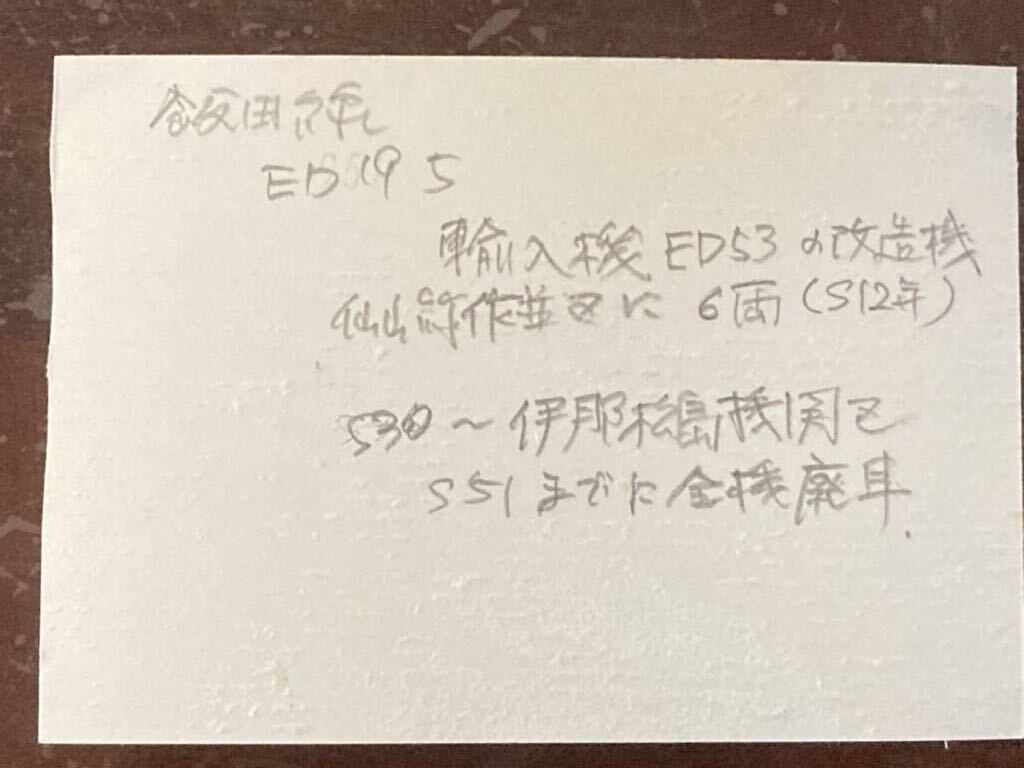 飯田線
ED19 5
輸入機ED53の改造機
仙山線作並区に 6両(S12年)
S30〜伊那松島機関区
S51までに全機廃車.